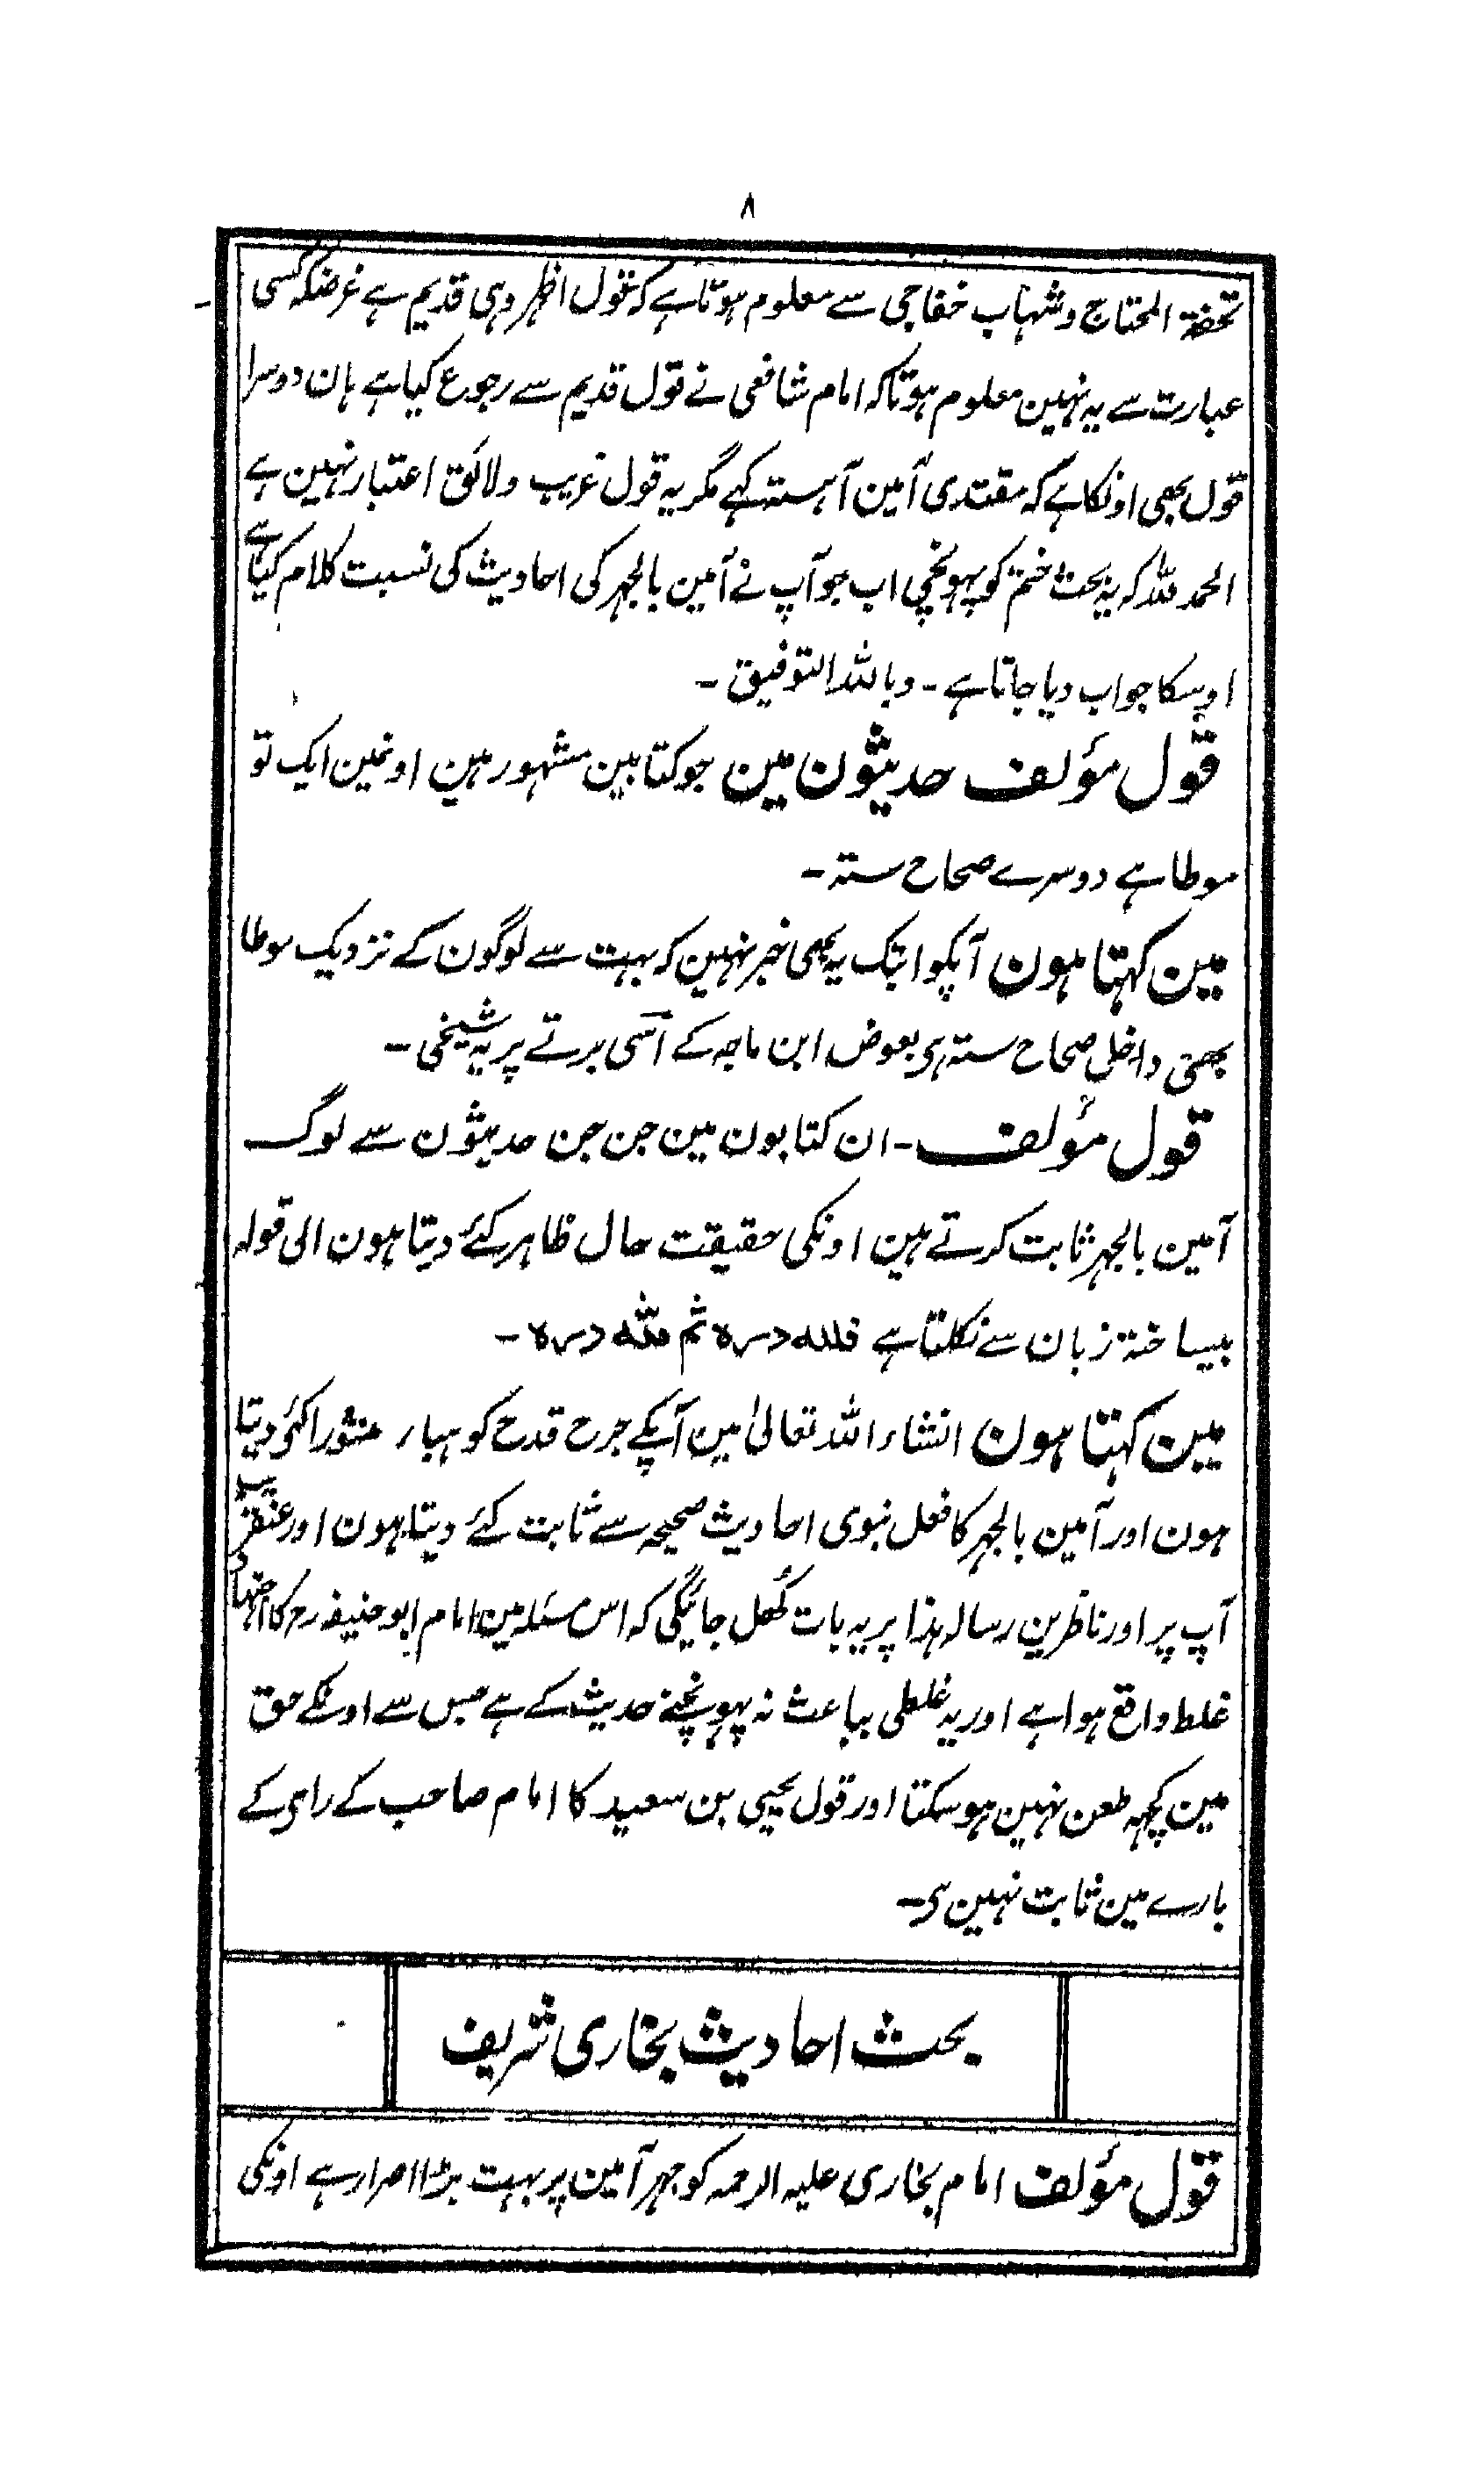 ۸
تحفۃ المحتاج و شہاب خفاجی سے معلوم ہوتا ہے کہ قول اظہر وہی قدیم ہے غرضکہ کسی
عبارت سے یہ نہین معلوم ہوتا کہ امام شافعی نے قول قدیم سے رجوع کیا ہے ہان دوسرا
قول بھی اونکا ہے کہ مقتدی آمین آہستہ کہے مگر یہ قول غریب و لائق اعتبار نہین ہے
الحمد للہ کہ یہ بحث ختم کو پہونچی اب جو آپ نے آمین بالجہر کی احادیث کی نسبت کلام کیا ہے
اوسکا جواب دیا جاتا ہے ۔ و باللہ التوفیق ۔
قول مؤلف حدیثون مین جو کتابین مشہور ہین اونمین ایک تو
موطا ہے دوسرے صحاح ستہ ۔
مین کہتا ہون آپکو ابتک یہ بھی خبر نہین کہ بہت سے لوگون کے نزدیک موطا
بھی داخل صحاح ستہ ہی بعوض ابن ماجہ کے اسی برتے پر یہ شیخی ۔
قول مؤلف ۔ ان کتابون مین جن جن حدیثون سے لوگ
آمین بالجہر ثابت کرتے ہین اونکی حقیقت حال ظاہر کئے دیتا ہون الی قولہ
بیساختہ زبان سے نکلتا ہے فللہ درہ ثم للہ درہ ۔
مین کہتا ہون انشاء اللہ تعالیٰ مین آپکے جرح قدح کو ہباء منثورا کئی دیتا
ہون اور آمین بالجہر کا فعل نبوی احادیث صحیحہ سے ثابت کئے دیتا ہون اور عنقریب
آپ پر اور ناظرین رسالہ ہذا پر یہ بات کُھل جائیگی کہ اس مسئلہ مین امام ابو حنیفہ رح کا اجتہاد
غلط واقع ہوا ہے اور یہ غلطی بباعث نہ پہونچنے حدیث کے ہے جس سے اونکے حق
مین کچھ طعن نہین ہو سکتا اور قول یحیی بن سعید کا امام صاحب کے رای کے
بارے مین ثابت نہین ہی ۔
بحث احادیث بخاری شریف
قول مؤلف امام بخاری علیہ الرحمہ کو جہر آمین پر بہت بڑا اصرار ہے اونکی